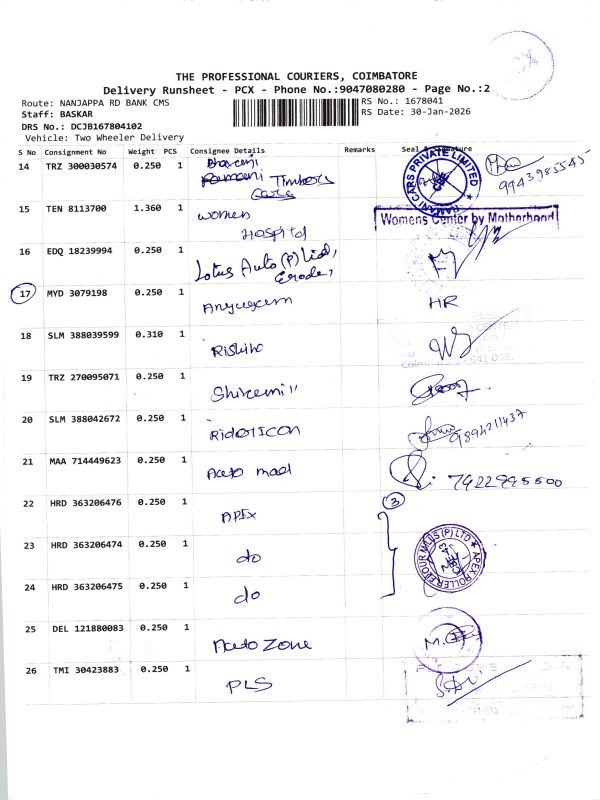 THE PROFESSIONAL COURIERS, COIMBATORE
Delivery Runsheet - PCX - Phone No.:9047080280 - Page No.:2
Route: NANJAPPA RD BANK CMS
RS No.: 1678041
Staff: BASKAR
RS Date: 30-Jan-2026
DRS No.: DCJB167804102
Vehicle: Two Wheeler Delivery
S No Consignment No Weight PCS Consignee Details Remarks Seal & Signature
14 TRZ 300030574 0.250 1 Timbers
9943983545
RAMANI CARS PRIVATE LIMITED
15 TEN 8113700 1.360 1 women
Hospital
Womens Center by Motherhood
16 EDQ 18239994 0.250 1 Lotus Auto (P) Ltd,
Erode,
17 MYD 3079198 0.250 1 HR
18 SLM 388039599 0.310 1
19 TRZ 270095071 0.250 1
20 SLM 388042672 0.250 1 RIDOTICON 9894211437
21 MAA 714449623 0.250 1 7922995500
22 HRD 363206476 0.250 1 APEX
3
23 HRD 363206474 0.250 1 do
APEX ROLLER FLOUR MILLS (P) LTD
24 HRD 363206475 0.250 1 do
25 DEL 121880083 0.250 1 Auto Zone
26 TMI 30423883 0.250 1 PLS